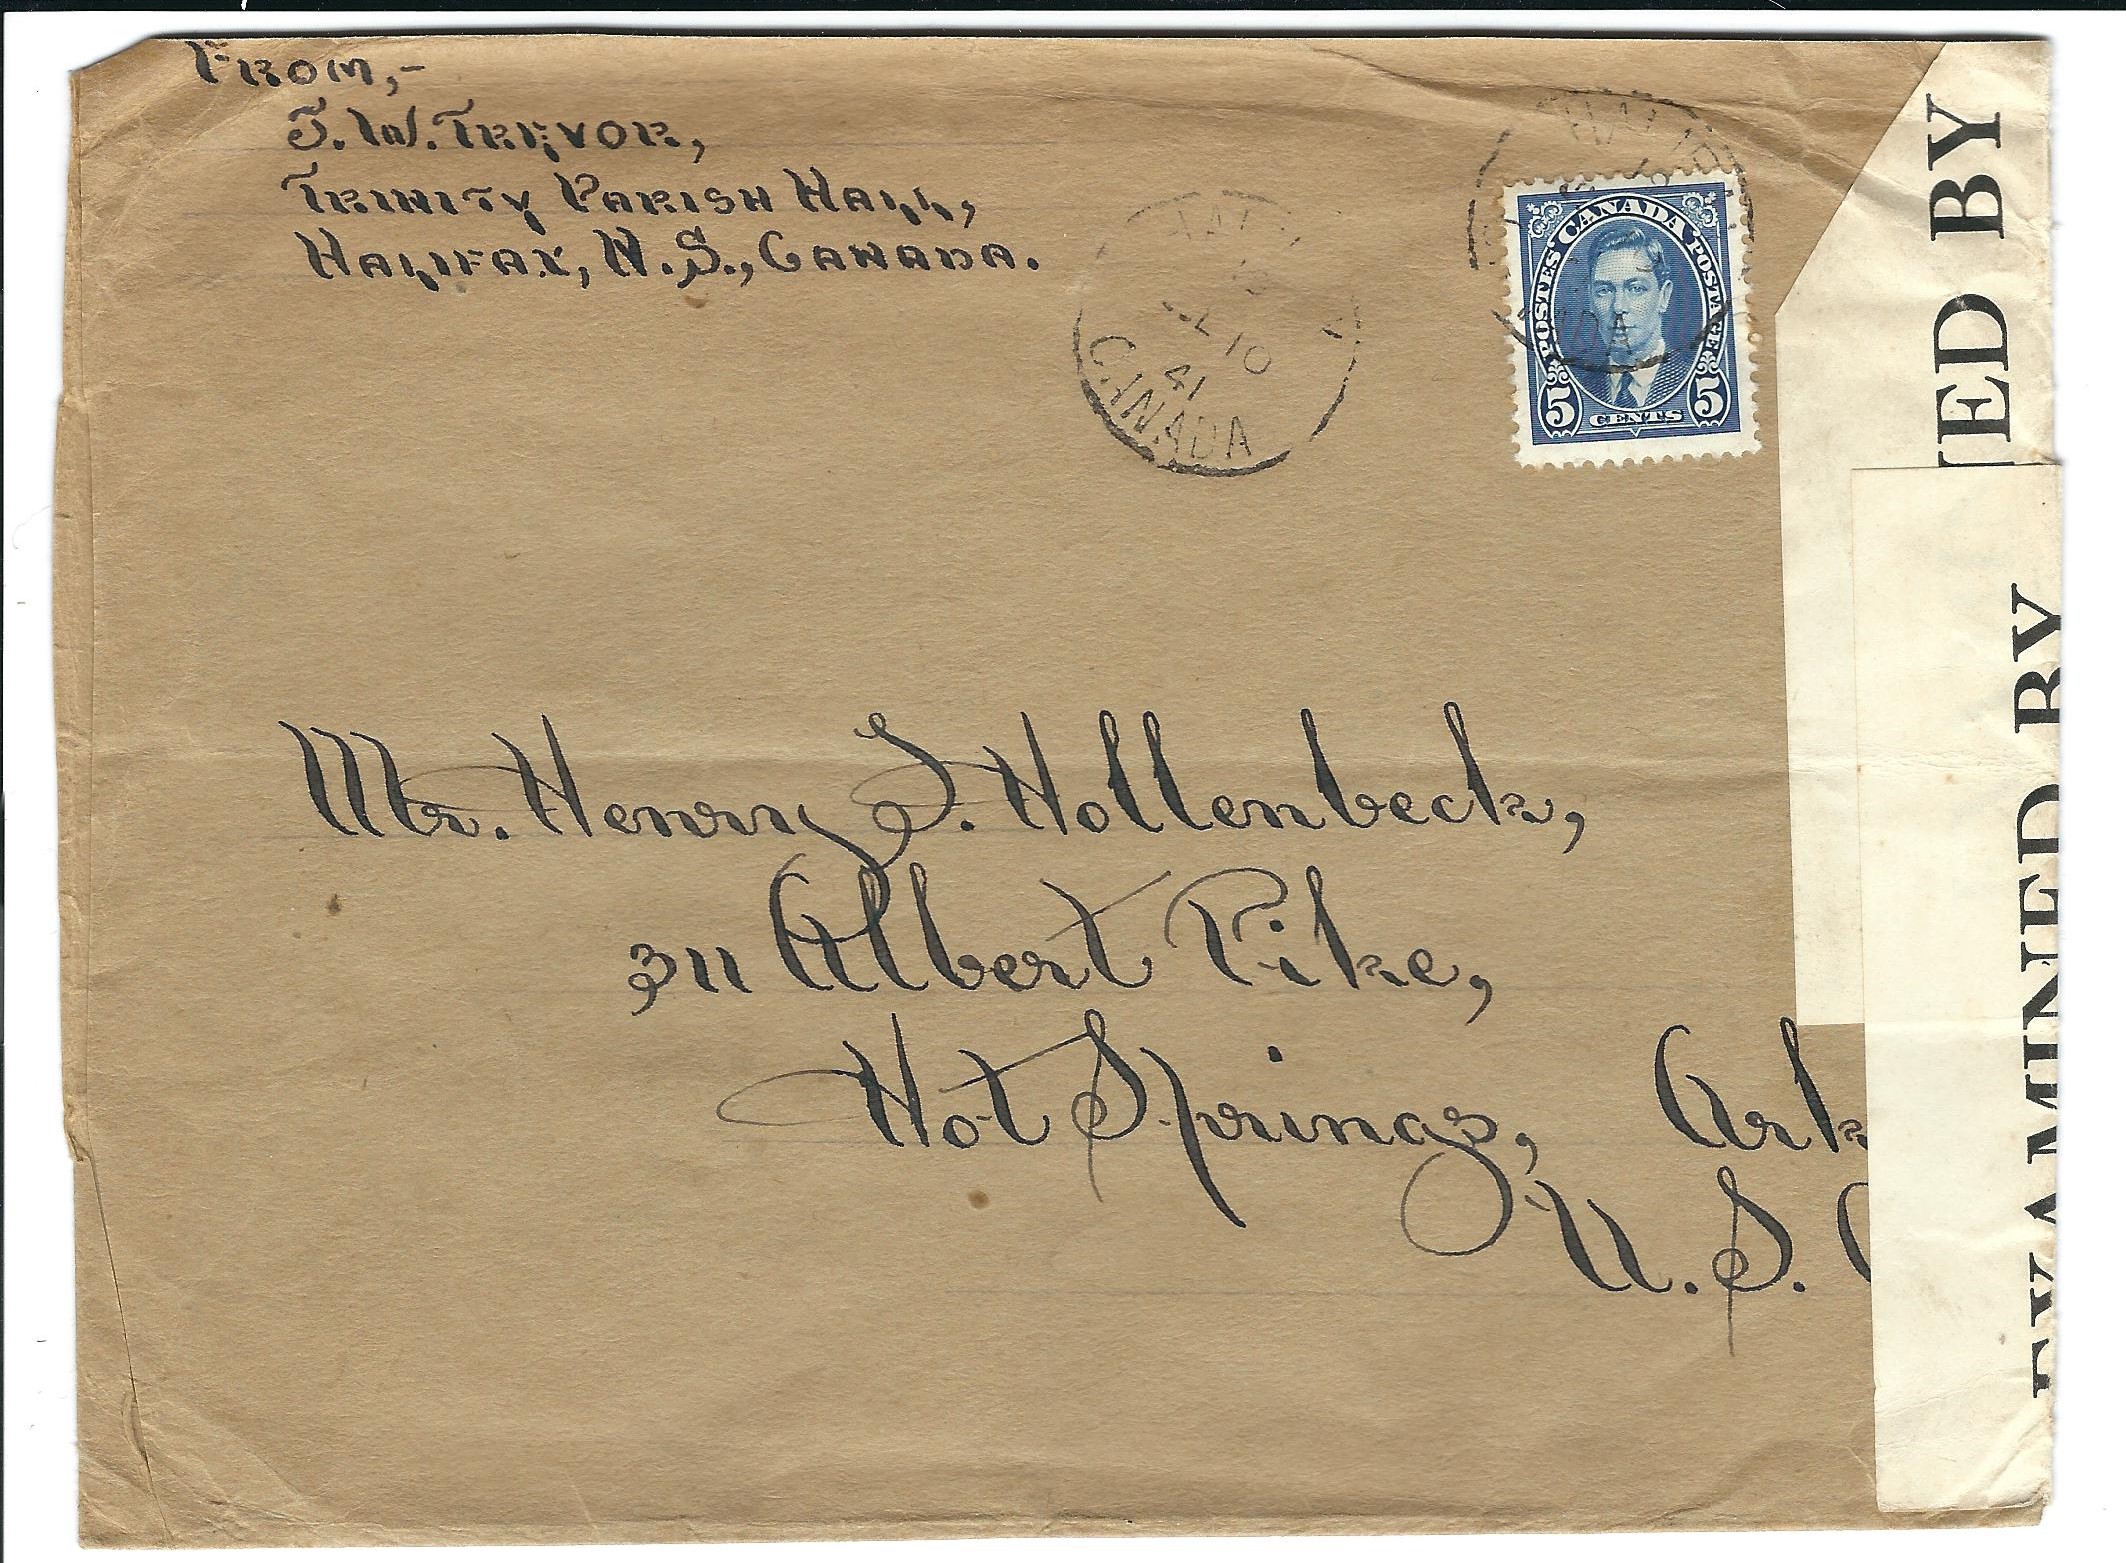 FROM,-
J. W. TREVOR,
TRINITY PARISH HALL,
HALIFAX, N. S., CANADA.
10
41
CANADA
POSTES CANADA POSTAGE
5 CENTS 5
NED BY
EXAMINED BY
Mr. Henry J. Hollenbeck,
311 Albert Pike,
Hot Springs, Ark
U. S.